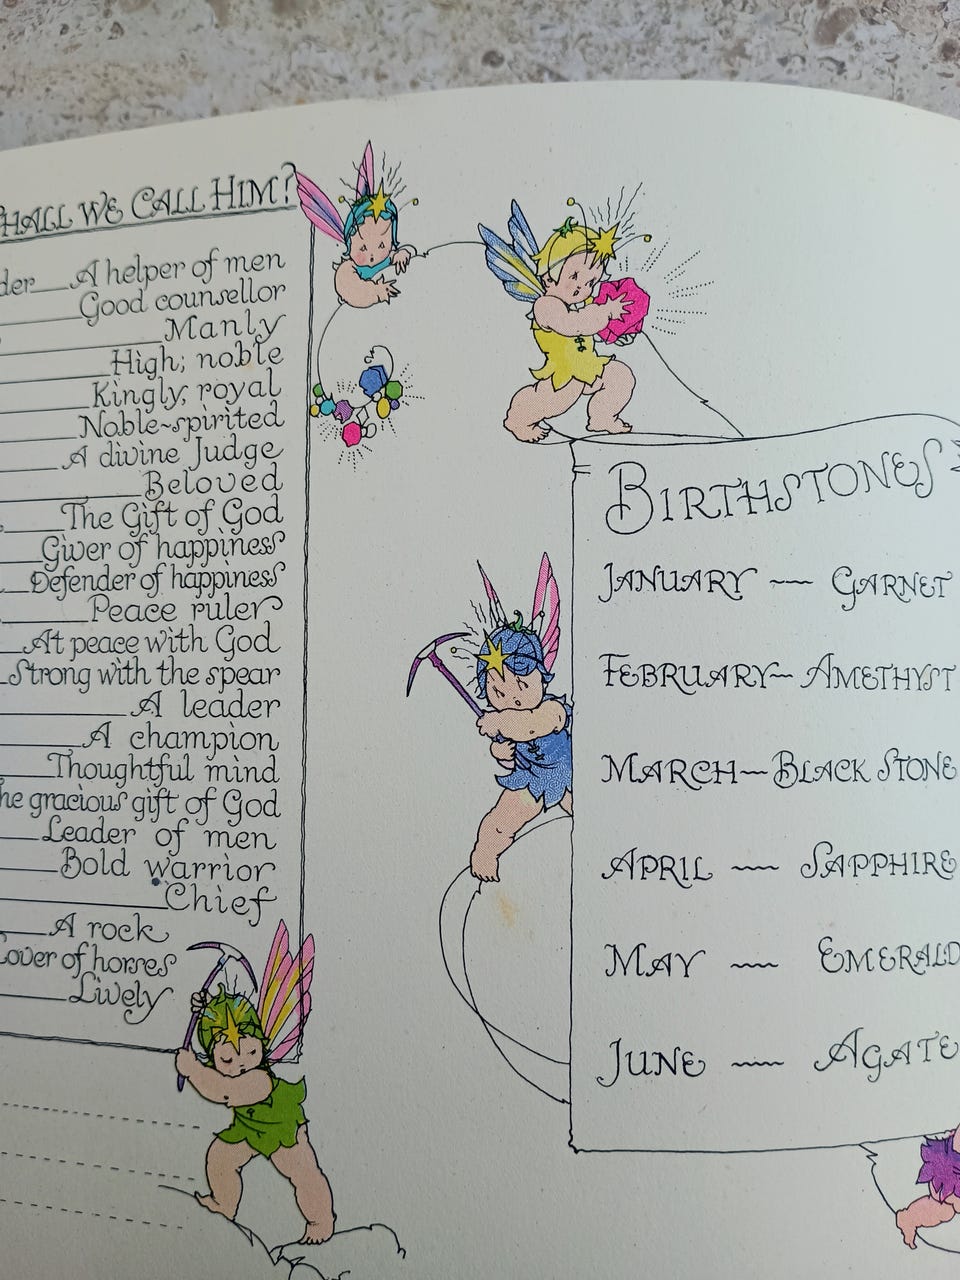 HALL WE CALL HIM?
der A helper of men
Good counsellor
Manly
High; noble
Kingly; royal
Noble~spirited
A divine Judge
Beloved
The Gift of God
Giver of happiness
Defender of happiness
Peace ruler
At peace with God
Strong with the spear
A leader
A champion
Thoughtful mind
he gracious gift of God
Leader of men
Bold warrior
Chief
A rock
Lover of horses
Lively
BIRTHSTONES
JANUARY ~~ GARNET
FEBRUARY~~ AMETHYST
MARCH~~BLACK STONE
APRIL ~~ SAPPHIRE
MAY ~~ EMERALD
JUNE ~~ AGATE